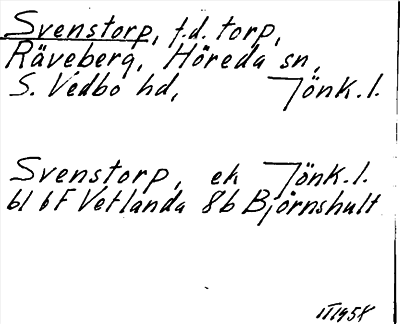 Svenstorp, f.d. torp,
Räveberg, Höreda sn,
S. Vedbo hd, Jönk.l.
Svenstorp, ek Jönk.l.
bl 6F Vetlanda 8b Björnshult